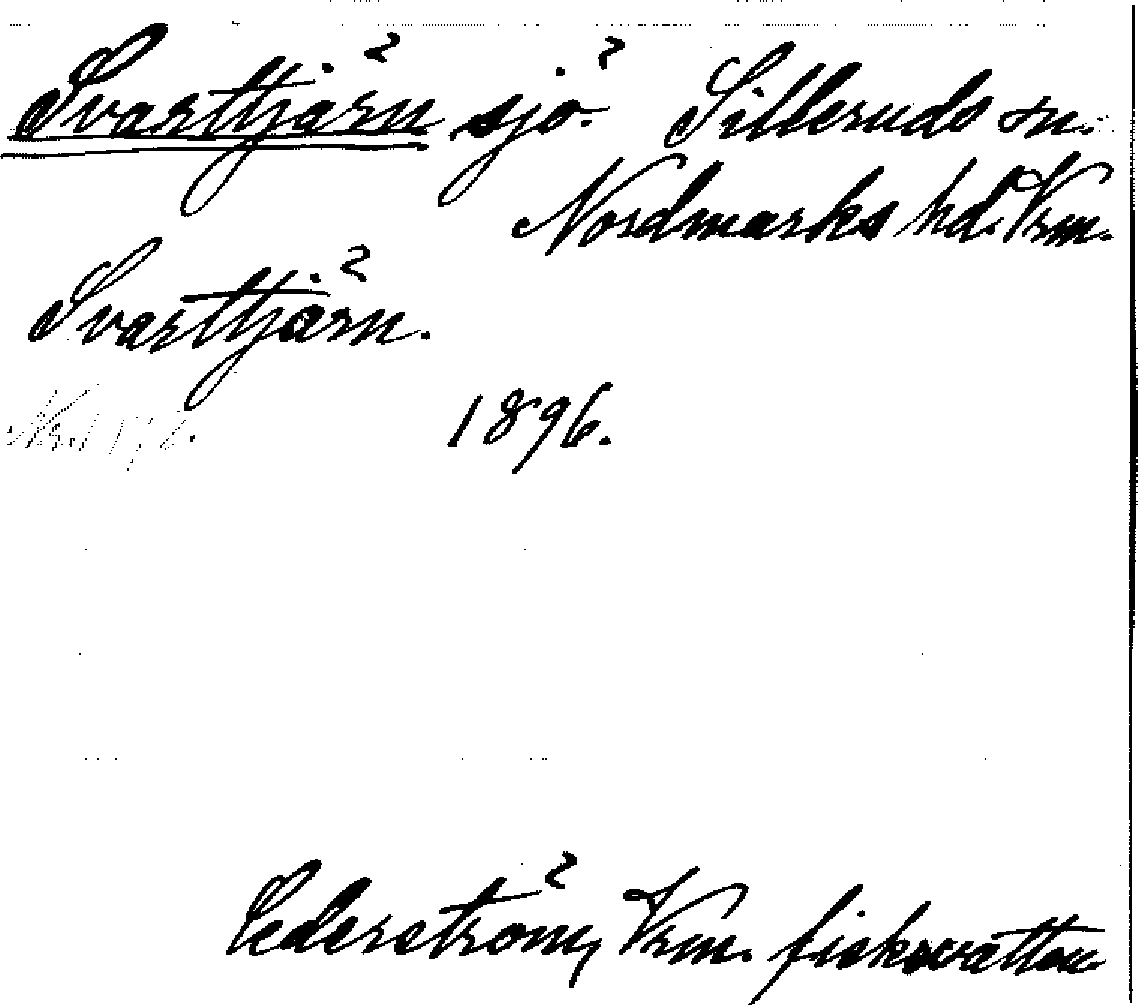 Svarttjärn sjö. Silleruds sn.
Nordmarks hd. Vrm.
Svarttjärn.
1896.
Cederström, Vrm. fiskevatten